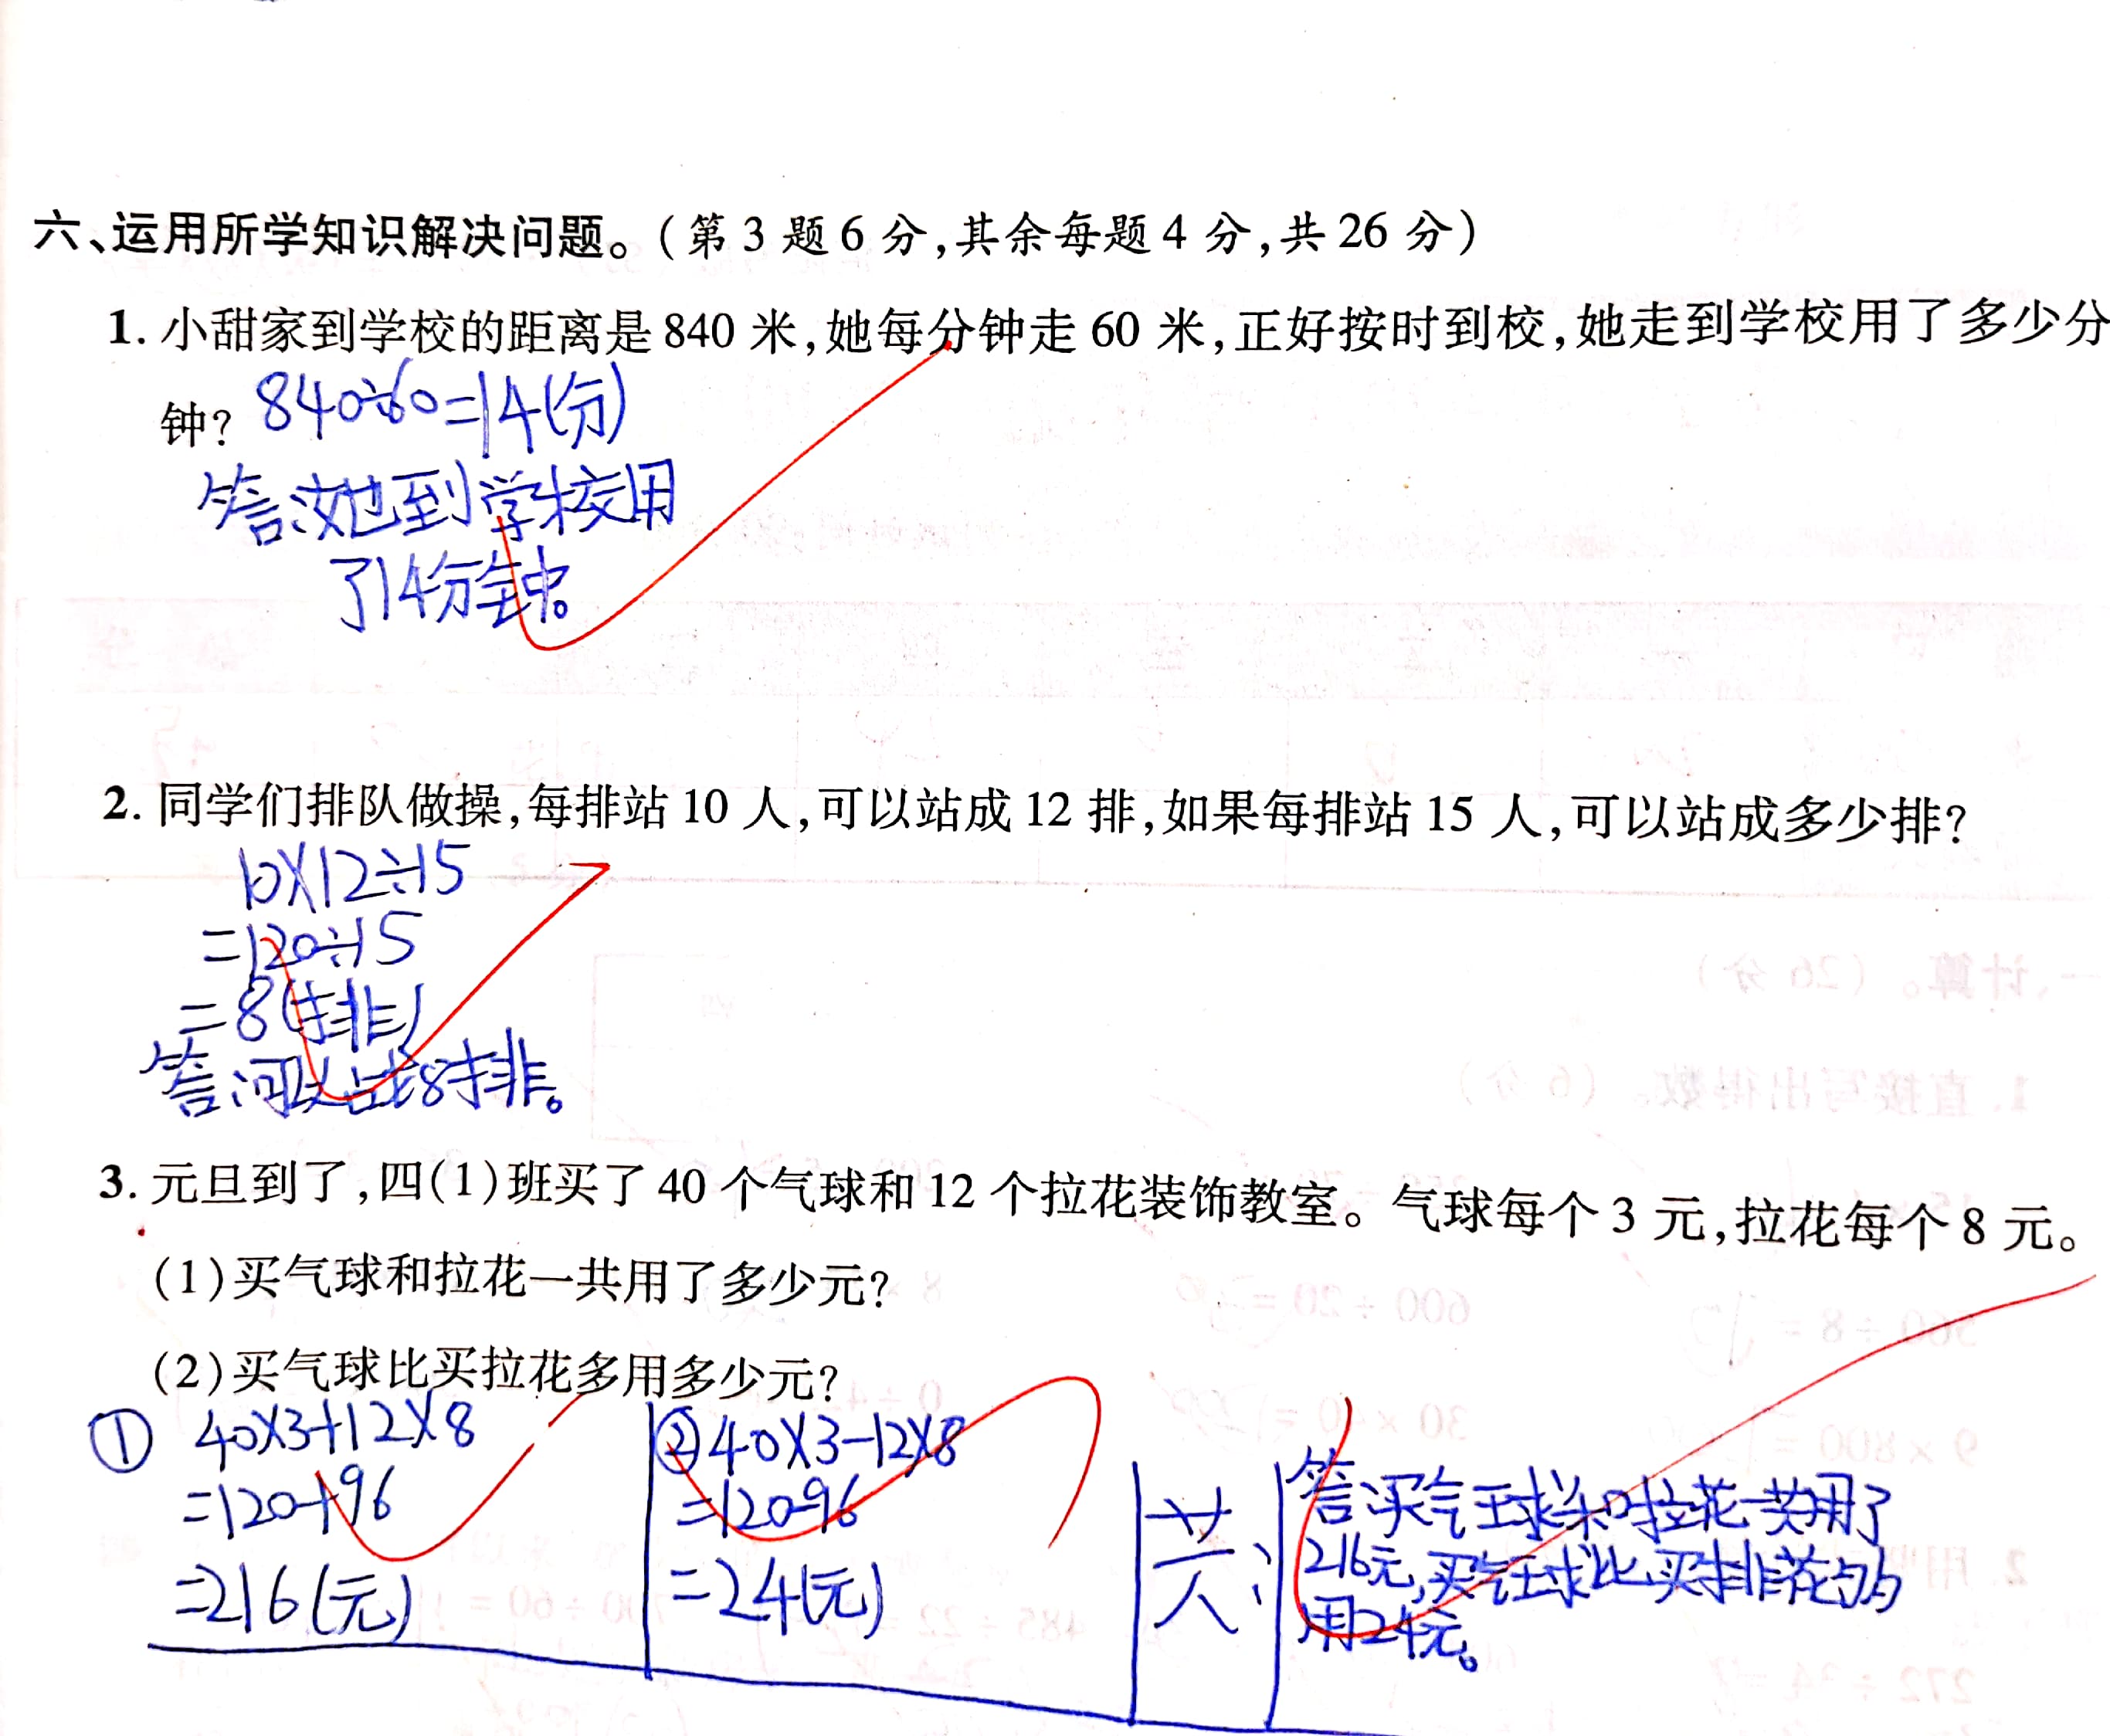 六、运用所学知识解决问题。(第 3 题 6 分,其余每题 4 分,共 26 分)
1. 小甜家到学校的距离是 840 米,她每分钟走 60 米,正好按时到校,她走到学校用了多少分
钟?
840÷60=14(分)
答:她到学校用
了14分钟。
2. 同学们排队做操,每排站 10 人,可以站成 12 排,如果每排站 15 人,可以站成多少排?
10×12÷15
=120÷15
=8(排)
答:可以占成8排。
3. 元旦到了,四(1)班买了 40 个气球和 12 个拉花装饰教室。气球每个 3 元,拉花每个 8 元。
(1)买气球和拉花一共用了多少元?
(2)买气球比买拉花多用多少元?
① 40×3+12×8
=120+96
=216(元)
② 40×3-12×8
=120-96
=24(元)
答:买气球和拉花一共用了
216元,买气球比买排花多
用24元。